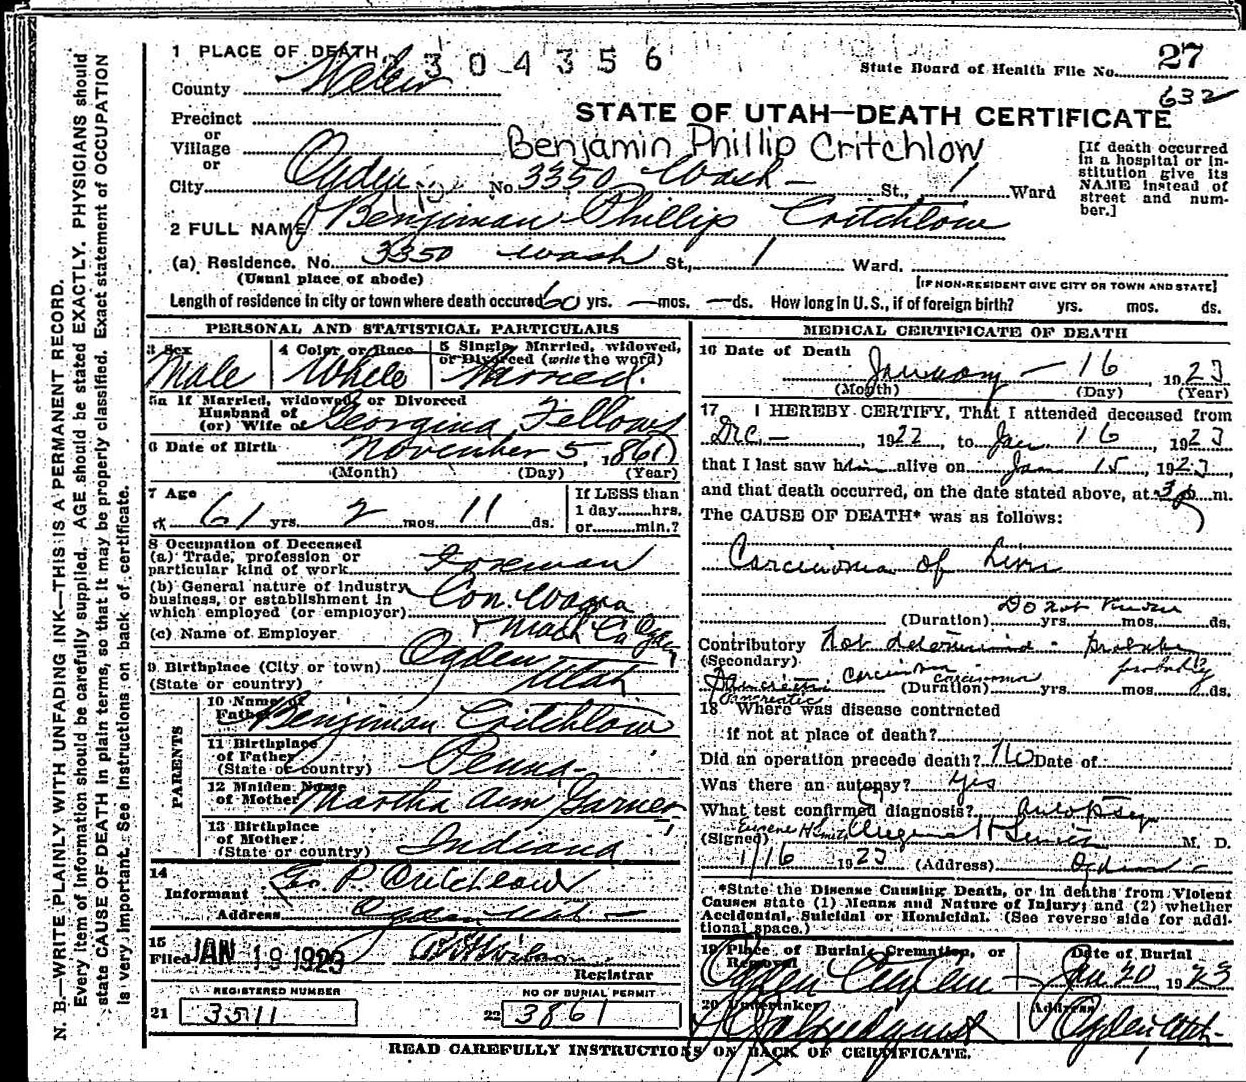 1 PLACE OF DEATH 2304356
State Board of Health File No. 27
County Weber
632
Precinct
STATE OF UTAH—DEATH CERTIFICATE
or
Village
Benjamin Phillip Critchlow
or
City Ogden No. 3350 Wash— St., 1 Ward
[If death occurred in a hospital or institution give its NAME instead of street and number.]
2 FULL NAME Benjiman Phillip Critchlow
(a) Residence. No. 3350 Wash St., 1 Ward.
(Usual place of abode)
[IF NON-RESIDENT GIVE CITY OR TOWN AND STATE]
Length of residence in city or town where death occured 60 yrs. — mos. — ds. How long in U.S., if of foreign birth? yrs. mos. ds.
PERSONAL AND STATISTICAL PARTICULARS
3 Sex
Male
4 Color or Race
White
5 Single, Married, widowed, or Divorced (write the word)
Married.
5a If Married, widowed, or Divorced
Husband of
(or) Wife of Georgina Fellows
6 Date of Birth November 5, 1861
(Month) (Day) (Year)
7 Age
61 yrs. 2 mos. 11 ds.
If LESS than
1 day......hrs.
or......min.?
8 Occupation of Deceased
(a) Trade, profession or
particular kind of work Foreman
(b) General nature of industry
business, or establishment in
which employed (or employer) Con. Wagon
(c) Name of Employer & Mach Co Ogden
9 Birthplace (City or town) Ogden
(State or country) Utah
PARENTS
10 Name of
Father Benjiman Critchlow
11 Birthplace
of Father
(State or country) Penna-
12 Maiden Name
of Mother Martha Ann Garner
13 Birthplace
of Mother
(State or country) Indiana
14
Informant Geo P. Critchlow
Address Ogden Utah —
15
Filed JAN 19 1923
Registrar
REGISTERED NUMBER
21 3511
NO OF BURIAL PERMIT
22 3861
MEDICAL CERTIFICATE OF DEATH
16 Date of Death January — 16, 1923
(Month) (Day) (Year)
17 I HEREBY CERTIFY, That I attended deceased from
Dec —, 1922, to Jan 16, 1923
that I last saw him alive on Jan 15, 1923,
and that death occurred, on the date stated above, at 3 p m.
The CAUSE OF DEATH* was as follows:
Carcinoma of Liver
Do not know
(Duration) yrs. mos. ds.
Contributory Not determined - probably
(Secondary) probably
Pancreatic carcinoma carcinoma
(Duration) yrs. mos. ds.
Pancreatic
18 Where was disease contracted
if not at place of death?
Did an operation precede death? No Date of
Was there an autopsy? Yes
What test confirmed diagnosis? Autopsy
Eugene H Smith
(Signed) Eugene H Smith M. D.
1/16 1923 (Address) Ogden —
*State the Disease Causing Death, or in deaths from Violent
Causes state (1) Means and Nature of Injury; and (2) whether
Accidental, Suicidal or Homicidal. (See reverse side for additional space.)
19 Place of Burial, Cremation, or
Removal
Ogden
Date of Burial
Jan 20, 1923
20 Undertaker
Address
Ogden Utah
READ CAREFULLY INSTRUCTIONS ON BACK OF CERTIFICATE.
N. B.—WRITE PLAINLY WITH UNFADING INK—THIS IS A PERMANENT RECORD.
Every item of information should be carefully supplied. AGE should be stated EXACTLY. PHYSICIANS should
state CAUSE OF DEATH in plain terms, so that it may be properly classified. Exact statement of OCCUPATION
is very important. See instructions on back of certificate.